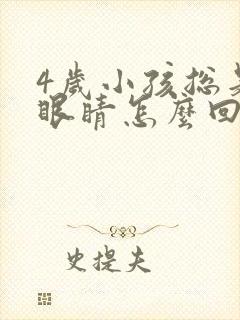 4歲小孩總
眼睛怎麼回
史提夫